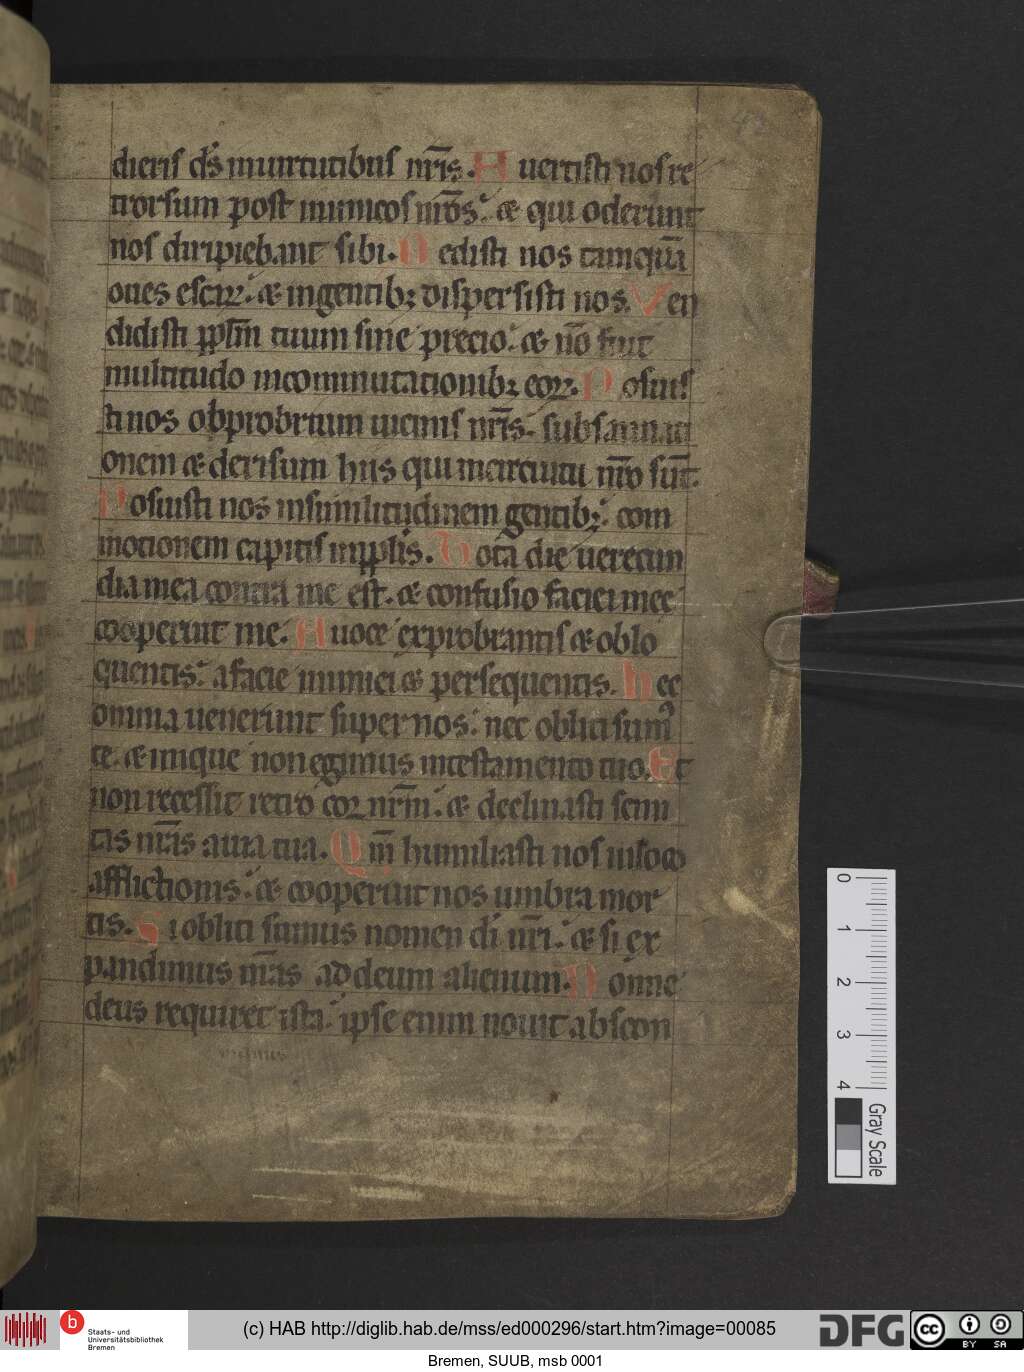 dieris ds̄ inuirtutibus nr̄is. A uertisti nos re
trorsum post inimicos nr̄os: & qui oderunt
nos diripiebant sibi. D edisti nos tanquā
oues escaꝝ: & ingentibꝫ dispersisti nos. Ven
didisti ppl̄m tuum sine precio: & nō fuit
multitudo incommutationibꝫ eoꝝ. P osuis
ti nos obprobrium uicinis nr̄is: subsannati
onem & derisum hiis qui incircuitu nr̄o sūt.
P osuisti nos insimilitudinem gentibꝫ: com
motionem capitis inppl̄is. T ota die uerecun
dia mea contra me est. & confusio faciei mee
cooperuit me. A uoce exprobrantis & oblo
quentis: a facie inimici & persequentis. h ec
omnia uenerunt super nos: nec obliti sumꝰ
te. & inique non egimus intestamento tuo. Et
non recessit retro cor nr̄m: & declinasti semi
tas nr̄as a uia tua. Q m̄ humiliasti nos inloco
afflictionis: & cooperuit nos umbra mor
tis. S i obliti sumus nomen di nr̄i: & si ex
pandimus nr̄as ad deum alienum. N onne
deus requiret ista: ipse enim nouit abscon
0 1 2 3 4
Gray Scale
b Staats- und
Universitätsbibliothek
Bremen
(c) HAB http://diglib.hab.de/mss/ed000296/start.htm?image=00085
DFG
cc BY SA
Bremen, SUUB, msb 0001